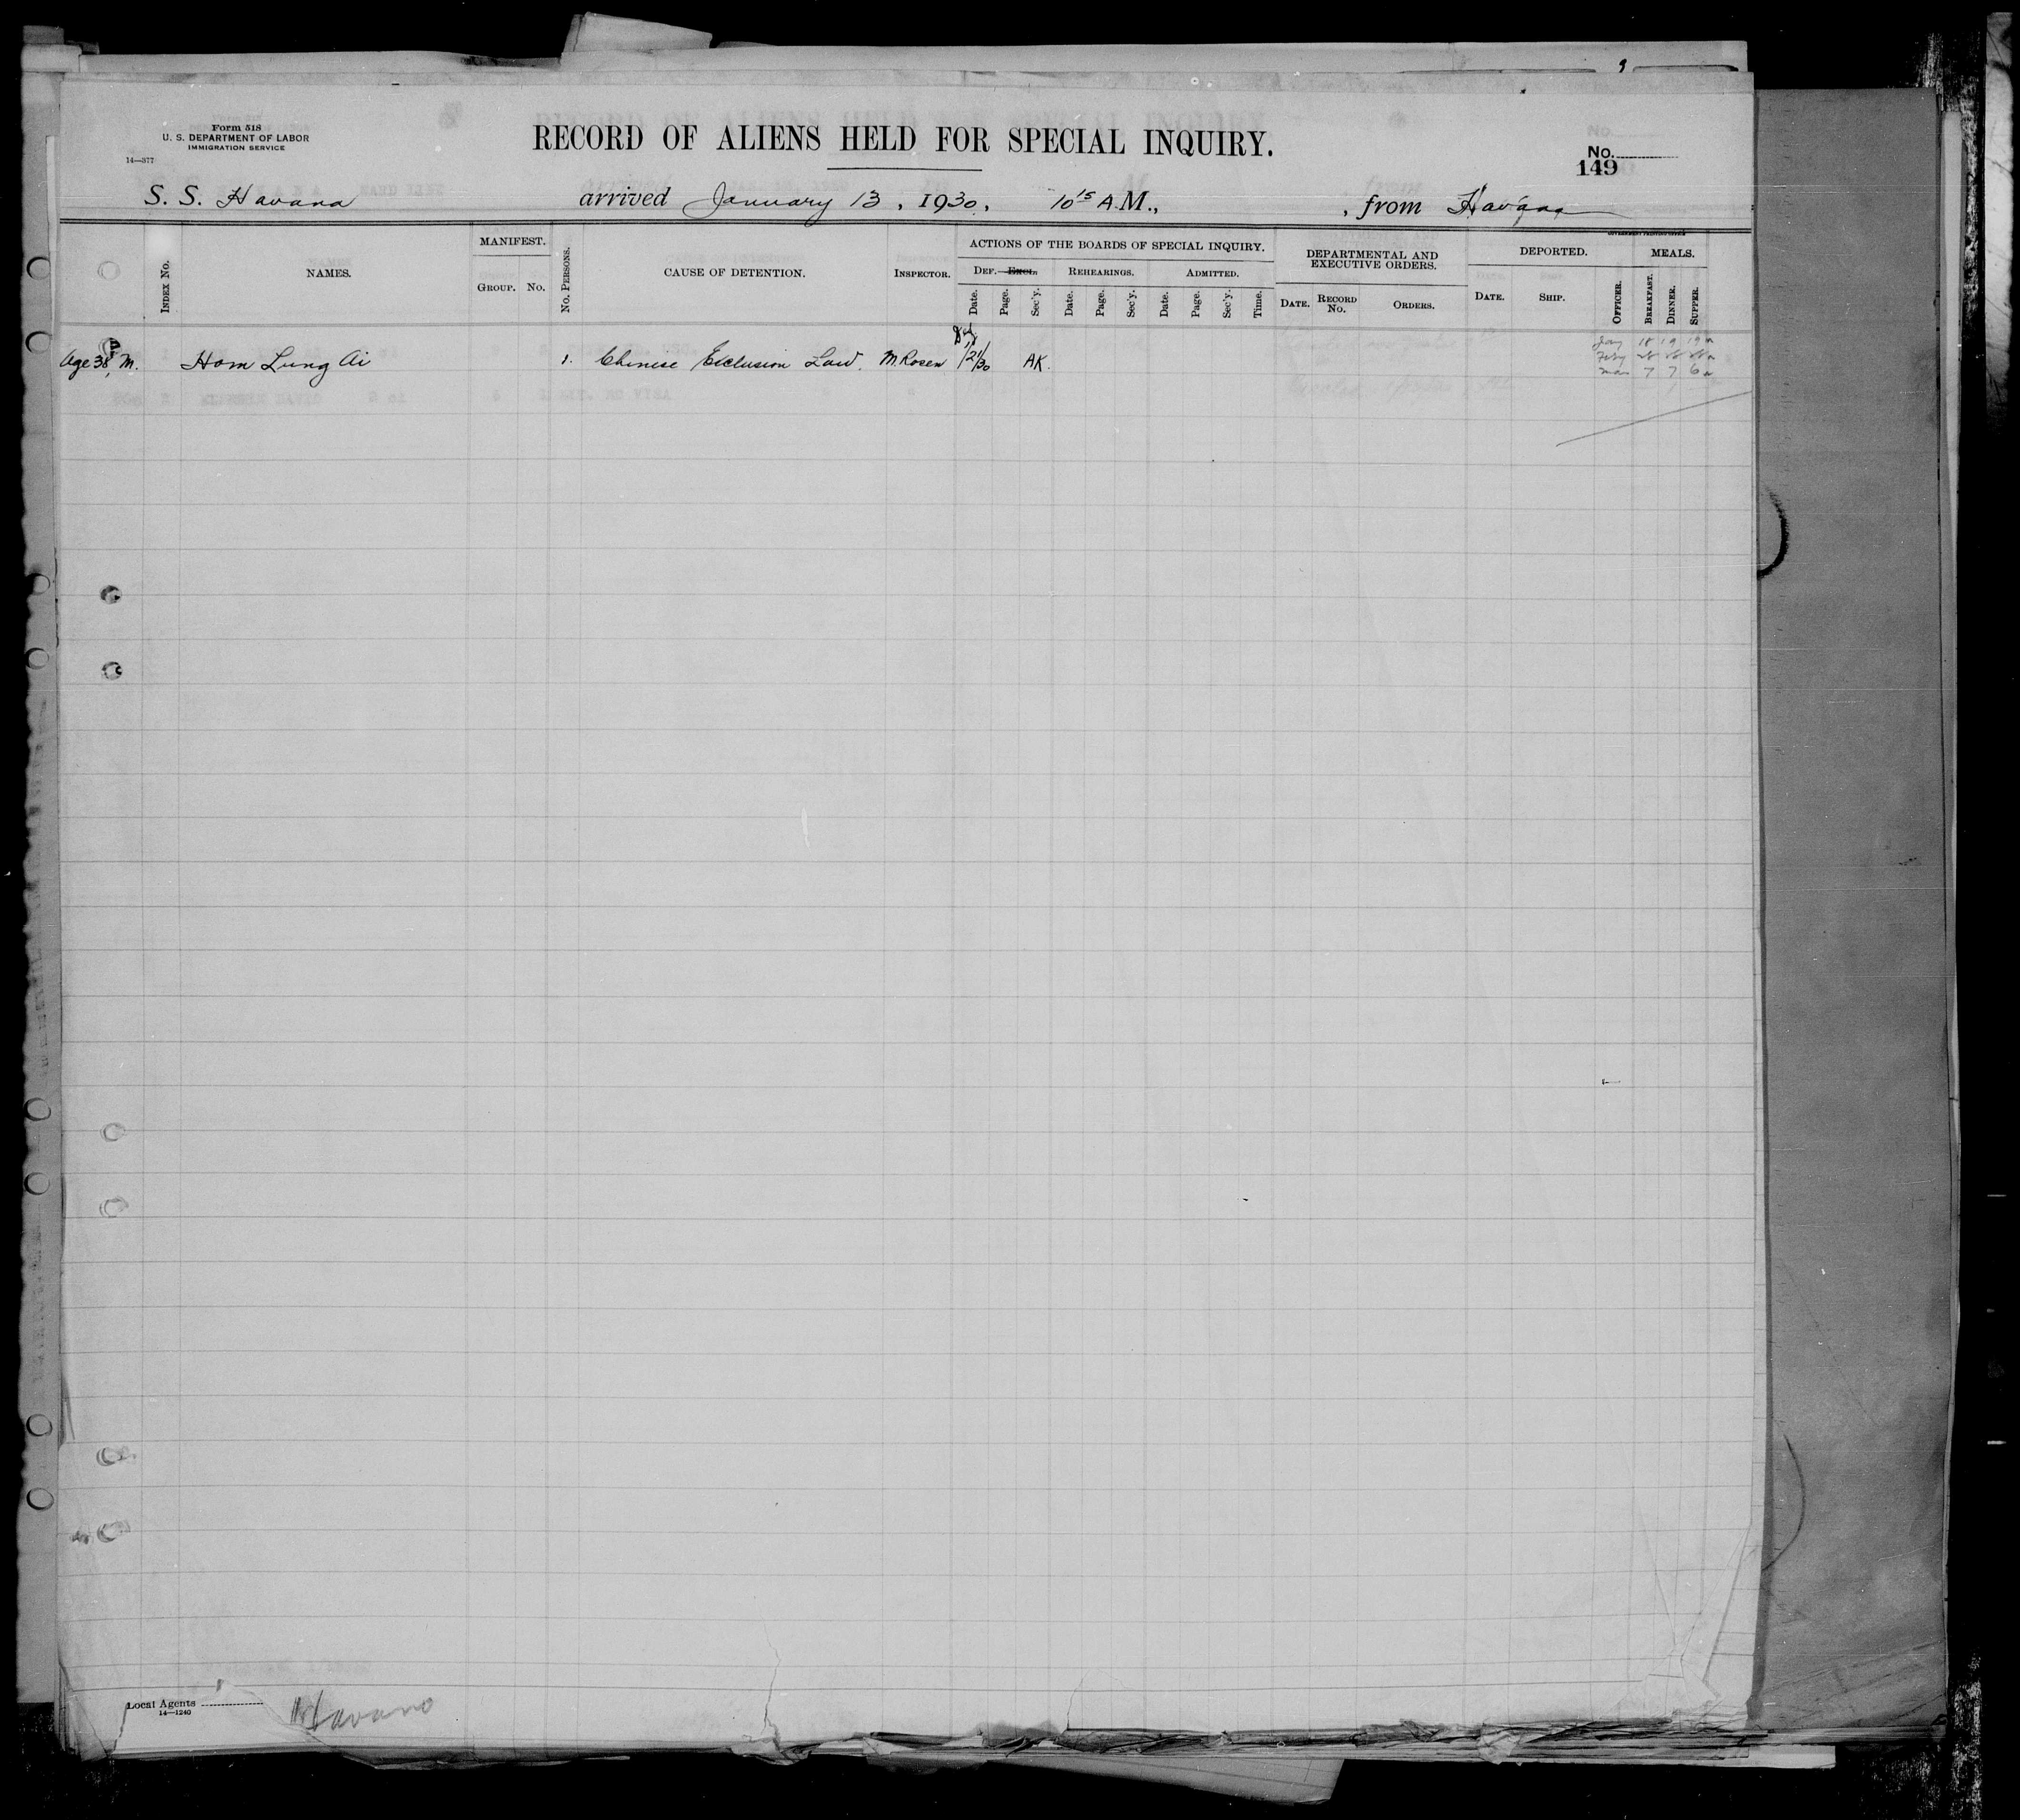 Form 518
U. S. DEPARTMENT OF LABOR
IMMIGRATION SERVICE
14—377
RECORD OF ALIENS HELD FOR SPECIAL INQUIRY.
No.
149
S. S. Havana arrived January 13, 1930, 10 15 A.M., , from Havana
INDEX No. NAMES. MANIFEST. GROUP. No. No. PERSONS. CAUSE OF DETENTION. INSPECTOR. ACTIONS OF THE BOARDS OF SPECIAL INQUIRY. DEF. EXCL. Date. Page. Sec'y. REHEARINGS. Date. Page. Sec'y. ADMITTED. Date. Page. Sec'y. Time. DEPARTMENTAL AND EXECUTIVE ORDERS. DATE. RECORD No. ORDERS. DEPORTED. DATE. SHIP. OFFICER. MEALS. BREAKFAST. DINNER. SUPPER.
Age 38, M. Hom Lung Ai 1. Chinese Exclusion Law. M. Rosen 1/21/30 AK.
Jan 18 19 19
Feby
Mar 7 7 6
Local Agents
14—1240
Havana